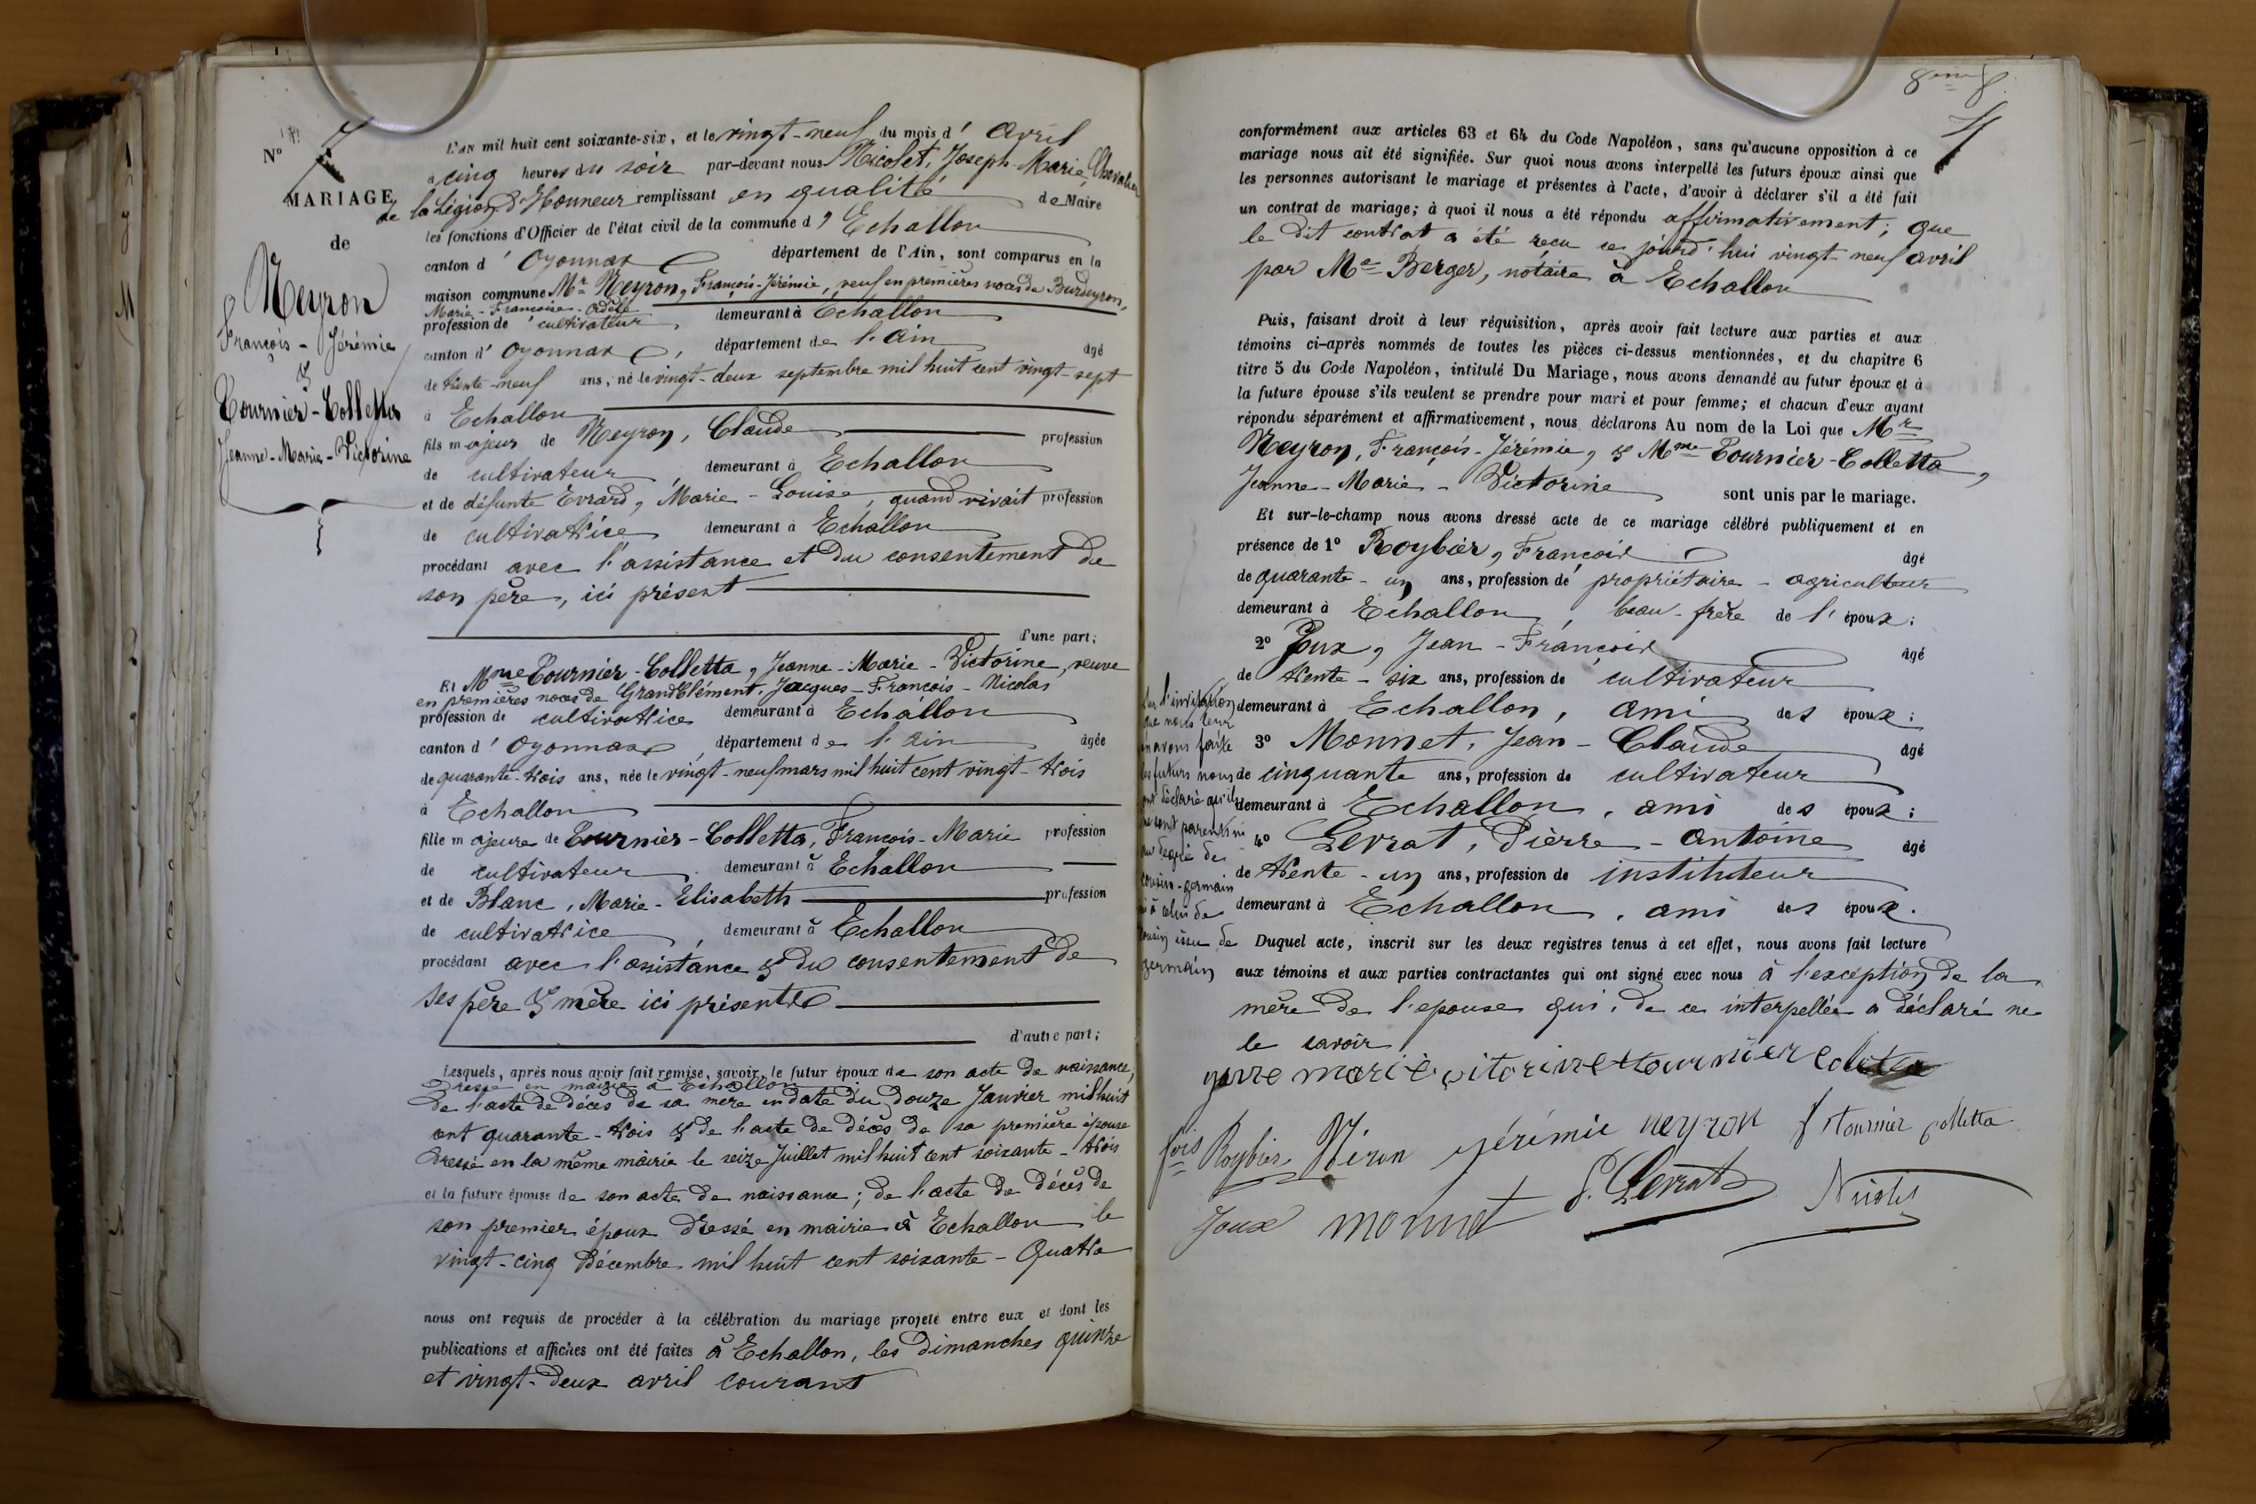 N° 7
MARIAGE
de
Neyron
François - Jérémie
&
Tournier - Colletta
Jeanne - Marie - Victorine
L'an mil huit cent soixante-six, et le vingt-neuf du mois d'avril
à cinq heures du soir par-devant nous Nicolet, Joseph-Marie, Chevalier
de la Légion d'Honneur remplissant en qualité de Maire
les fonctions d'Officier de l'état civil de la commune d'Echallon
canton d'Oyonnax département de l'Ain, sont comparus en la
maison commune Mr Neyron, François-Jérémie, veuf en premières noces de Burdeyron,
Marie - Françoise - Adèle
profession de cultivateur, demeurant à Echallon
canton d'Oyonnax, département de l'Ain âgé
de trente-neuf ans, né le vingt-deux septembre mil huit cent vingt-sept
à Echallon
fils majeur de Neyron, Claude profession
de cultivateur demeurant à Echallon
et de défunte Evrard, Marie-Louise, quand vivait profession
de cultivatrice demeurant à Echallon
procédant avec l'assistance et du consentement de
son père, ici présent
d'une part;
Et Mme Tournier-Colletta, Jeanne-Marie-Victorine, veuve
en premières noces de GrandClément, Jacques-François-Nicolas
profession de cultivatrice demeurant à Echallon
canton d'Oyonnax, département de l'Ain âgée
de quarante-trois ans, née le vingt-neuf mars mil huit cent vingt-trois
à Echallon
fille majeure de Tournier-Colletta, François-Marie profession
de cultivateur demeurant à Echallon
et de Blanc, Marie-Elisabeth profession
de cultivatrice, demeurant à Echallon
procédant avec l'assistance & du consentement de
ses père & mère ici présents
d'autre part;
Lesquels, après nous avoir fait remise, savoir, le futur époux de son acte de naissance,
dressé en mairie à Echallon
de l'acte de décès de sa mère en date du douze Janvier mil huit
cent quarante-trois & de l'acte de décès de sa première épouse
dressé en la même mairie le seize Juillet mil huit cent soixante-trois
et la future épouse de son acte de naissance; de l'acte de décès de
son premier époux dressé en mairie à Echallon le
vingt-cinq Décembre mil huit cent soixante-Quatre
nous ont requis de procéder à la célébration du mariage projeté entre eux et dont les
publications et affiches ont été faites à Echallon, les dimanches quinze
et vingt-deux avril courant
8
conformément aux articles 63 et 64 du Code Napoléon, sans qu'aucune opposition à ce
mariage nous ait été signifiée. Sur quoi nous avons interpellé les futurs époux ainsi que
les personnes autorisant le mariage et présentes à l'acte, d'avoir à déclarer s'il a été fait
un contrat de mariage; à quoi il nous a été répondu affirmativement; que
le dit contrat a été reçu ce jourd'hui vingt-neuf avril
par Me Berger, notaire à Echallon
Puis, faisant droit à leur réquisition, après avoir fait lecture aux parties et aux
témoins ci-après nommés de toutes les pièces ci-dessus mentionnées, et du chapitre 6
titre 5 du Code Napoléon, intitulé Du Mariage, nous avons demandé au futur époux et à
la future épouse s'ils veulent se prendre pour mari et pour femme; et chacun d'eux ayant
répondu séparément et affirmativement, nous déclarons Au nom de la Loi que Mr
Neyron, François-Jérémie, & Mme Tournier-Colletta,
Jeanne-Marie-Victorine sont unis par le mariage.
Et sur-le-champ nous avons dressé acte de ce mariage célébré publiquement et en
présence de 1° Roybier, François âgé
de quarante-un ans, profession de propriétaire-agriculteur
demeurant à Echallon, beau-frère de l'époux;
2° Joux, Jean-François âgé
de trente-six ans, profession de cultivateur
demeurant à Echallon, ami des époux;
3° Monnet, Jean-Claude âgé
de cinquante ans, profession de cultivateur
demeurant à Echallon, ami des époux;
4° Levrat, Pierre-Antoine âgé
de trente-un ans, profession de instituteur
demeurant à Echallon, ami des époux.
Sur l'invitation
que nous leur
en avons faite
les futurs nous
ont déclaré qu'ils
ne sont parents ni
au degré de
cousin-germain
ni à celui de
cousin issu de
germain
Duquel acte, inscrit sur les deux registres tenus à cet effet, nous avons fait lecture
aux témoins et aux parties contractantes qui ont signé avec nous à l'exception de la
mère de l'épouse qui, de ce interpellée a déclaré ne
le savoir
marie vitorine tournier coletta
fois Roybier Néron jérémie neyron f Tournier Colletta
Joux monnet P. Levrat Nicolet